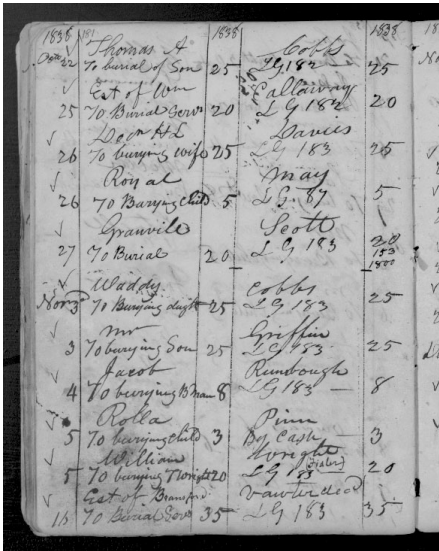 1838 181 1838 1838
Thomas A Cobbs
22 To burial of Son 25 LG 182 25
Est of Wm Callaway
25 To Burial Serv 20 LG 182 20
Davies
26 To burying wife 25 LG 183 25
Royal May
26 To Burying Child 5 LG 87 5
Granvile Scott
27 To Burial 20 LG 183 20
153
1800
Waddy Cobbs
Nov 3 To Burying daugt 25 LG 183 25
Mr Griffin
3 To burying Son 25 LG 183 25
Jacob Rumbough
4 To burying B man 8 LG 183 8
Rolla Pinn
5 To burying Child 3 By Cash 3
William Wright
5 To burying T Wright 20 LG 183 20
Est of Bransford Vawter decd
To Burial Serv 35 LG 183 35